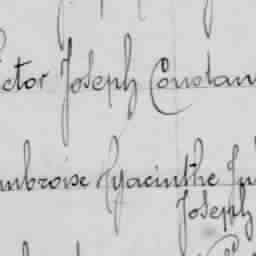 ictor Joseph Constan
mbroise Hyacinthe Ju
Joseph